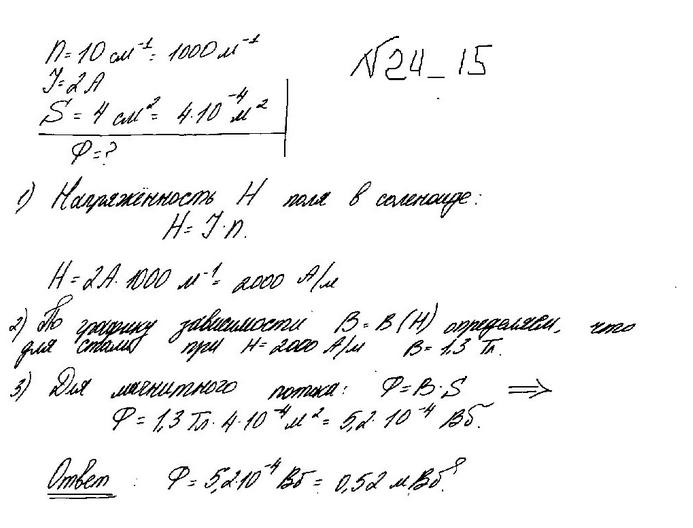 n = 10 см⁻¹ = 1000 м⁻¹
№24_15
J = 2А
S = 4 см² = 4·10⁻⁴ м²
Ф = ?
1) Напряжённость H поля в соленоиде:
H = J·n.
H = 2А·1000 м⁻¹ = 2000 А/м
2) По графику зависимости B = B(H) определяем, что
для стали при H = 2000 А/м B = 1,3 Тл.
3) Для магнитного потока: Ф = B·S ⇒
Ф = 1,3 Тл·4·10⁻⁴ м² = 5,2·10⁻⁴ Вб.
Ответ: Ф = 5,2·10⁻⁴ Вб = 0,52 мВб